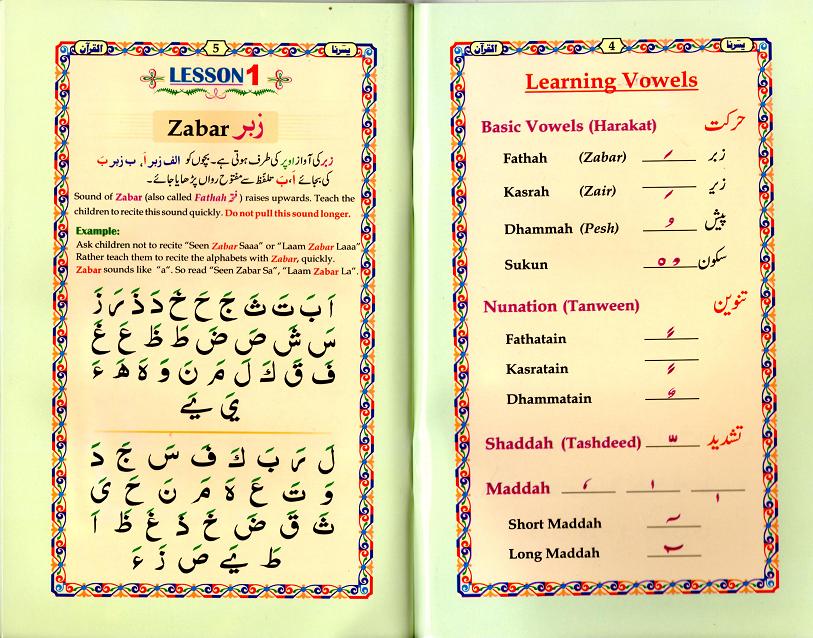 القرآن 4 یسّرنا
Learning Vowels
Basic Vowels (Harakat) حرکت
Fathah (Zabar) َ زبر
Kasrah (Zair) ِ زیر
Dhammah (Pesh) ُ پیش
Sukun ْ سکون
Nunation (Tanween) تنوین
Fathatain ً
Kasratain ٍ
Dhammatain ٌ
Shaddah (Tashdeed) ّ تشدید
Maddah
Short Maddah
Long Maddah
القرآن 5 یسّرنا
LESSON 1
Zabar زبر
زبر کی آواز اوپر کی طرف ہوتی ہے۔ بچوں کو الف زبر اَ، ب زبر بَ
کی بجائے اَ، بَ تلفظ سے مفتوح رواں پڑھایا جائے۔
Sound of Zabar (also called Fathah فتحہ) raises upwards. Teach the
children to recite this sound quickly. Do not pull this sound longer.
Example:
Ask children not to recite "Seen Zabar Saaa" or "Laam Zabar Laaa"
Rather teach them to recite the alphabets with Zabar, quickly.
Zabar sounds like "a". So read "Seen Zabar Sa", "Laam Zabar La".
اَ بَ تَ ثَ جَ حَ خَ دَ ذَ رَ زَ
سَ شَ صَ ضَ طَ ظَ عَ غَ
فَ قَ كَ لَ مَ نَ وَ هَ ھَ ءَ
يَ يَے
لَ رَ بَ كَ فَ سَ جَ دَ
وَ تَ عَ هَ مَ نَ حَ ىَ
ثَ قَ ضَ خَ ذَ غَ ظَ اَ
طَ يَے صَ زَ ءَ